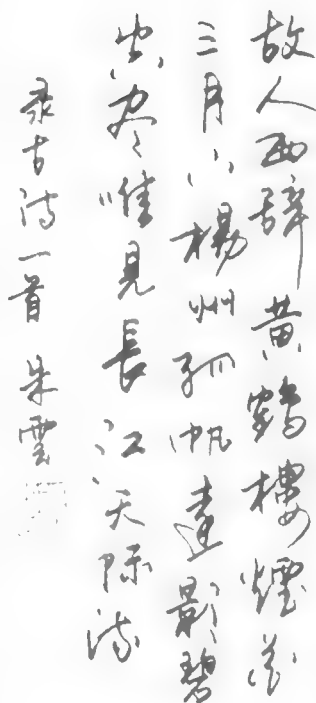 故人西辞黄鹤楼煙花
三月下楊州孤帆遠影碧
山尽唯見長江天际流
录古诗一首 朱雲